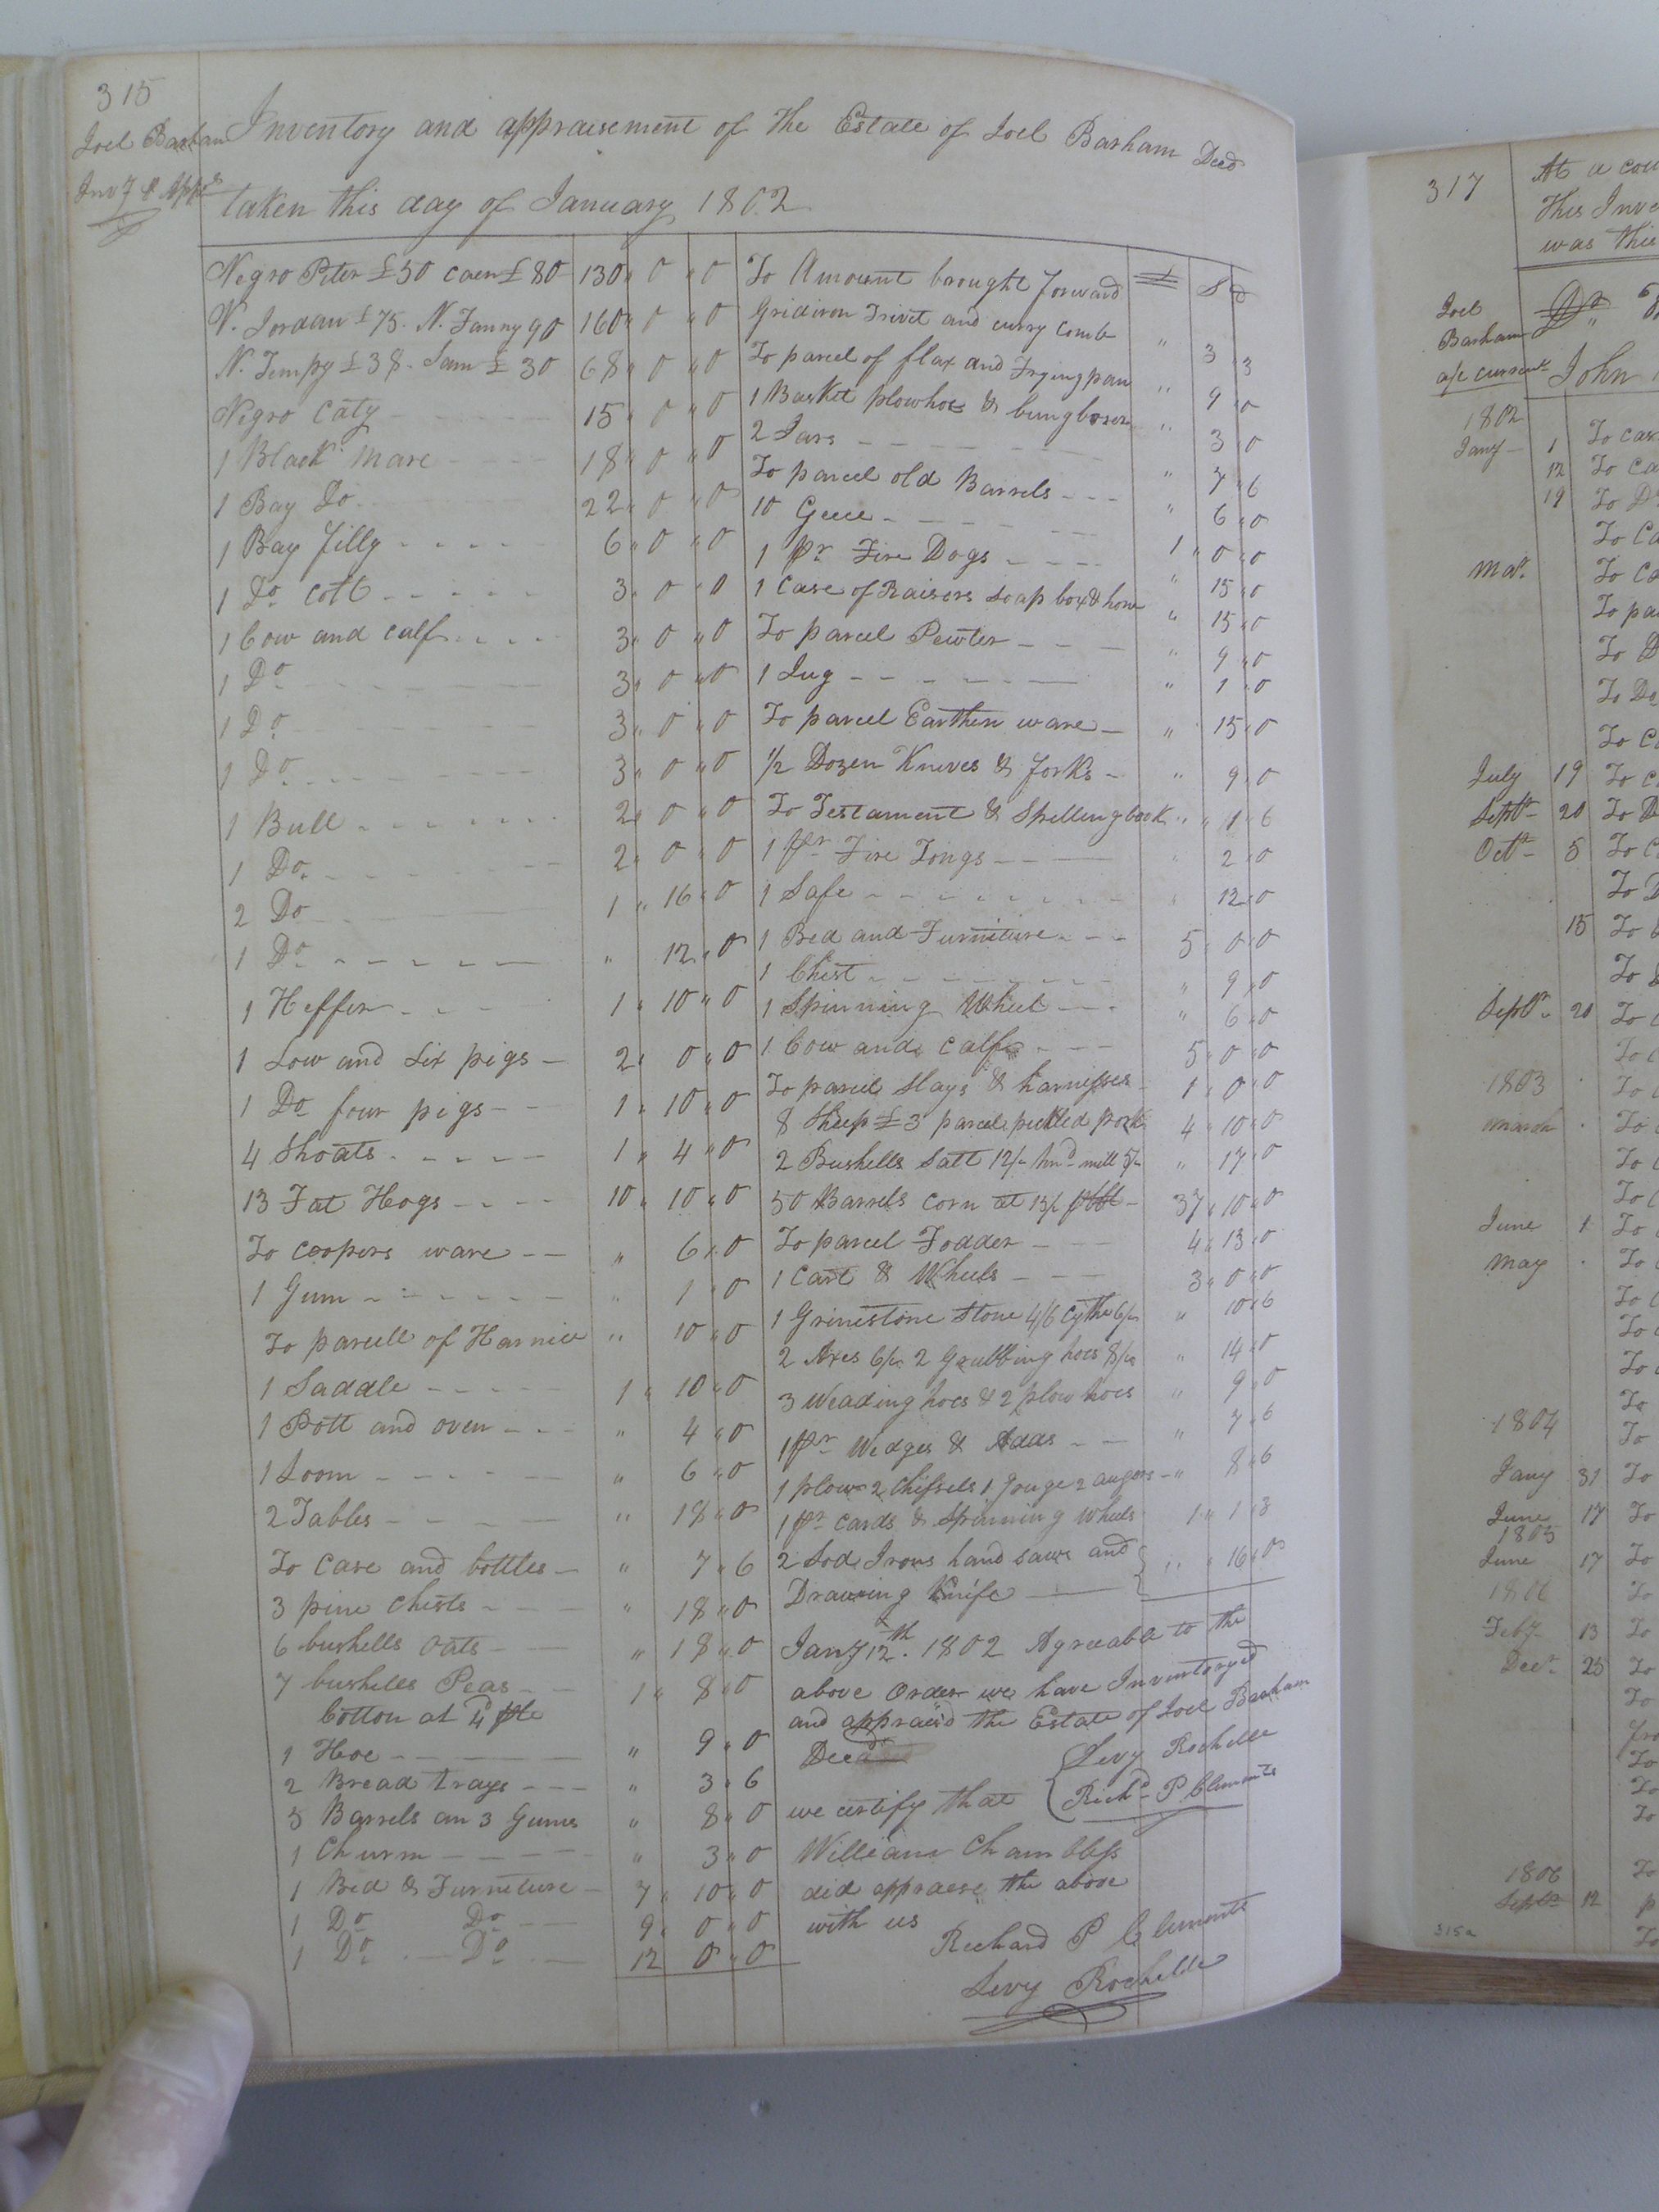 315
Joel Barham
Invy & Appt
Inventory and appraisement of the Estate of Joel Barham Decd
taken this day of January 1802
Negro Peter £50 caen £80 130 " 0 " 0
N. Jordan £75. N. Fanny 90 160 " 0 " 0
N. Tempy £38. Sam £30 68 " 0 " 0
Negro Caty 15 " 0 " 0
1 Black mare 18 " 0 " 0
1 Bay Do 22 " 0 " 0
1 Bay filly 6 " 0 " 0
1 Do colt 3 " 0 " 0
1 Cow and calf 3 " 0 " 0
1 Do 3 " 0 " 0
1 Do 3 " 0 " 0
1 Do 3 " 0 " 0
1 Bull 2 " 0 " 0
1 Do 2 " 0 " 0
2 Do 1 " 16 " 0
1 Do " 12 " 0
1 Heffer 1 " 10 " 0
1 Sow and six pigs 2 " 0 " 0
1 Do four pigs 1 " 10 " 0
4 Shoats 1 " 4 " 0
13 Fat Hogs 10 " 10 " 0
To coopers ware " 6 " 0
1 Gum " 1 " 0
To parcell of Harnice " 10 " 0
1 Saddle 1 " 10 " 0
1 Pott and oven " 4 " 0
1 Loom " 6 " 0
2 Tables " 18 " 0
To case and bottles " 7 " 6
3 pine chests " 18 " 0
6 bushells oats " 18 " 0
7 bushells Peas 1 " 8 " 0
Cotton at 4d
1 Hoe " 9 " 0
2 Bread trays " 3 " 6
5 Barrels an 3 Gums " 8 " 0
1 Churn " 3 " 0
1 Bed & Furniture 7 " 10 " 0
1 Do Do 9 " 0 " 0
1 Do Do 12 0 " 0
To Amount brought forward £ S D
Gridiron Trivet and curry comb " 3 " 3
To parcel of flax and Frying pan " 9 " 0
1 Basket plowhoe & bungborer " 3 " 0
2 Jars " 7 " 6
To parcel old Barrels " 6 " 0
10 Geese 1 " 0 " 0
1 pr Fire Dogs " 15 " 0
1 Case of Raisors soap box & hone " 15 " 0
To parcel Pewter " 9 " 0
1 Jug " 1 " 0
To parcel Earthen ware " 15 " 0
1/2 Dozen Knives & forks " 9 " 0
To Testament & Spelling book " 1 " 6
1 pr Fire Tongs " 2 " 0
1 Safe " 12 " 0
1 Bed and Furniture 5 " 0 " 0
1 Chest " 9 " 0
1 Spinning Wheel " 6 " 0
1 Cow and calf 5 " 0 " 0
To parcel Slays & harnesses 1 " 0 " 0
8 Sheep £3 parcel pickled pork 4 " 10 " 0
2 Bushells Salt 12/- hnd mill 5/- " 17 " 0
50 Barrels corn at 15/ 37 " 10 " 0
To parcel Fodder 4 " 13 " 0
1 Cart & Wheels 3 " 0 " 0
1 Grinestone stone 4/6 cythe 6/- " 10 " 6
2 Axes 6/- 2 Grubbing hoes 8/- " 14 " 0
3 Weading hoes & 2 plow hoes " 9 " 0
1 pr Wedges & Adds " 7 " 6
1 plow 2 Chissels 1 gouge 2 augers " 8 " 6
1 pr cards & Spinning Wheels 1 " 1 " 3
2 Sod Irons hand saws and
Drawing Knife " 16 " 0
Jany 12th. 1802 Agreeable to the
above Order we have Inventoryed
and appraisd the Estate of Joel Barham
Decd
Levy Rochelle
Richd P Clements
we certify that
William Chambless
did appraese the above
with us
Richard P Clements
Levy Rochelle
317
At a cou
This Inve
was thi
Joel
Barham
a/c current
Dr
John
1802
Jany 1 To cas
12 To Ca
19 To D
To Ca
Mar To Ca
To pa
To D
To Do
To C
July 19 To C
Septr 20 To D
Octr 5 To C
To D
15 To
To
Septr 20 To C
To C
1803 To
March To
To
To C
June 1 To
May To
To C
To
To
To
1804 To
Jany 31 To
June 17 To
1805
June 17 To
1806 To
Feby 13 To
Decr 25 To
To
fro
To
To
To
1806 To
Septr 12 p
To
315a